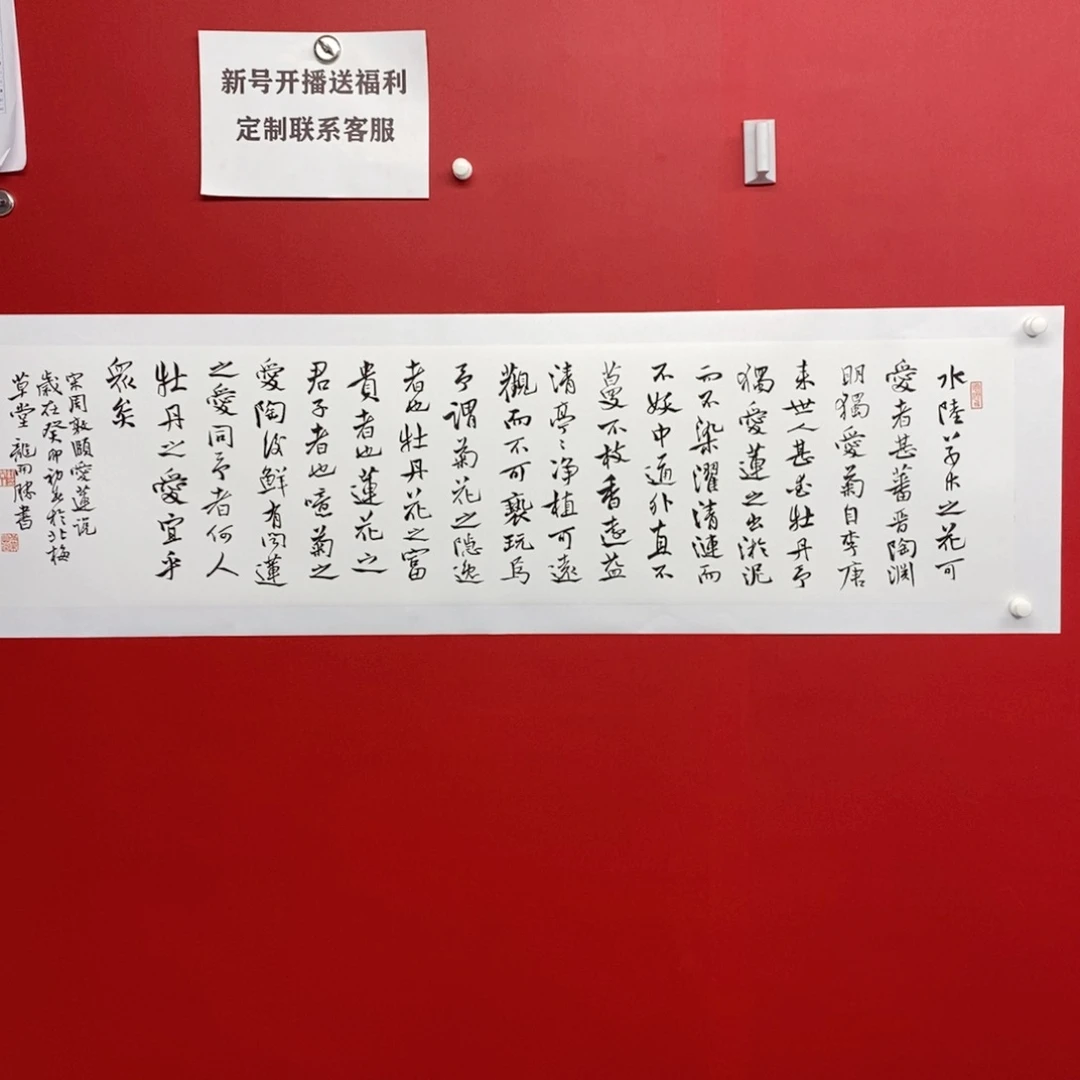 新号开播送福利
定制联系客服
水陸草木之花可
愛者甚蕃晋陶渊
明獨愛菊自李唐
来世人甚爱牡丹予
獨愛蓮之出淤泥
而不染濯清漣而
不妖中通外直不
蔓不枝香遠益
清亭〻净植可遠
觀而不可褻玩焉
予謂菊花之隠逸
者也牡丹花之富
貴者也蓮花之
君子者也噫菊之
愛陶後鮮有闻蓮
之愛同予者何人
牡丹之愛宜乎
眾矣
宋周敦頤愛蓮说
歲在癸卯初冬於北梅
草堂 而勝書